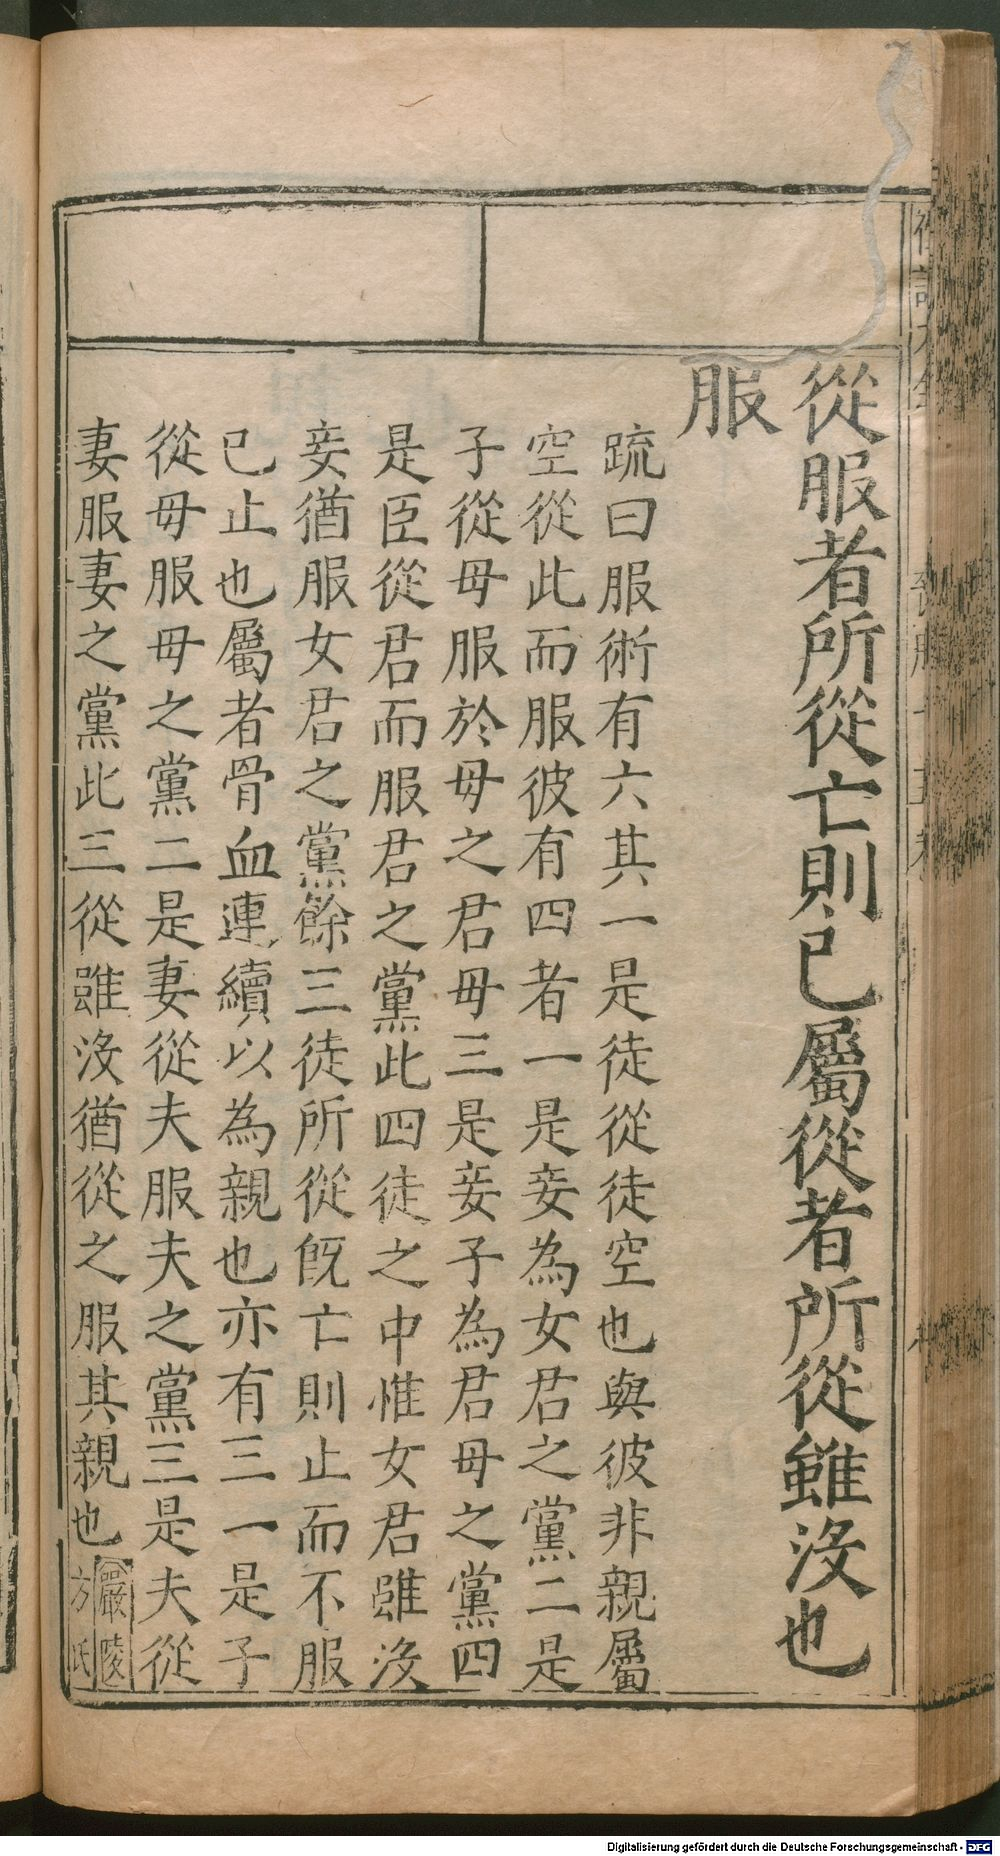 從服者所從亡則已屬從者所從雖沒也
服
疏曰服術有六其一是徒從徒空也與彼非親屬
空從此而服彼有四者一是妾為女君之黨二是
子從母服於母之君母三是妾子為君母之黨四
是臣從君而服君之黨此四徒之中惟女君雖沒
妾猶服女君之黨餘三徒所從旣亡則止而不服
已止也屬者骨血連續以為親也亦有三一是子
從母服母之黨二是妻從夫服夫之黨三是夫從
妻服妻之黨此三從雖沒猶從之服其親也 嚴陵
方氏
Digitalisierung gefördert durch die Deutsche Forschungsgemeinschaft - DFG